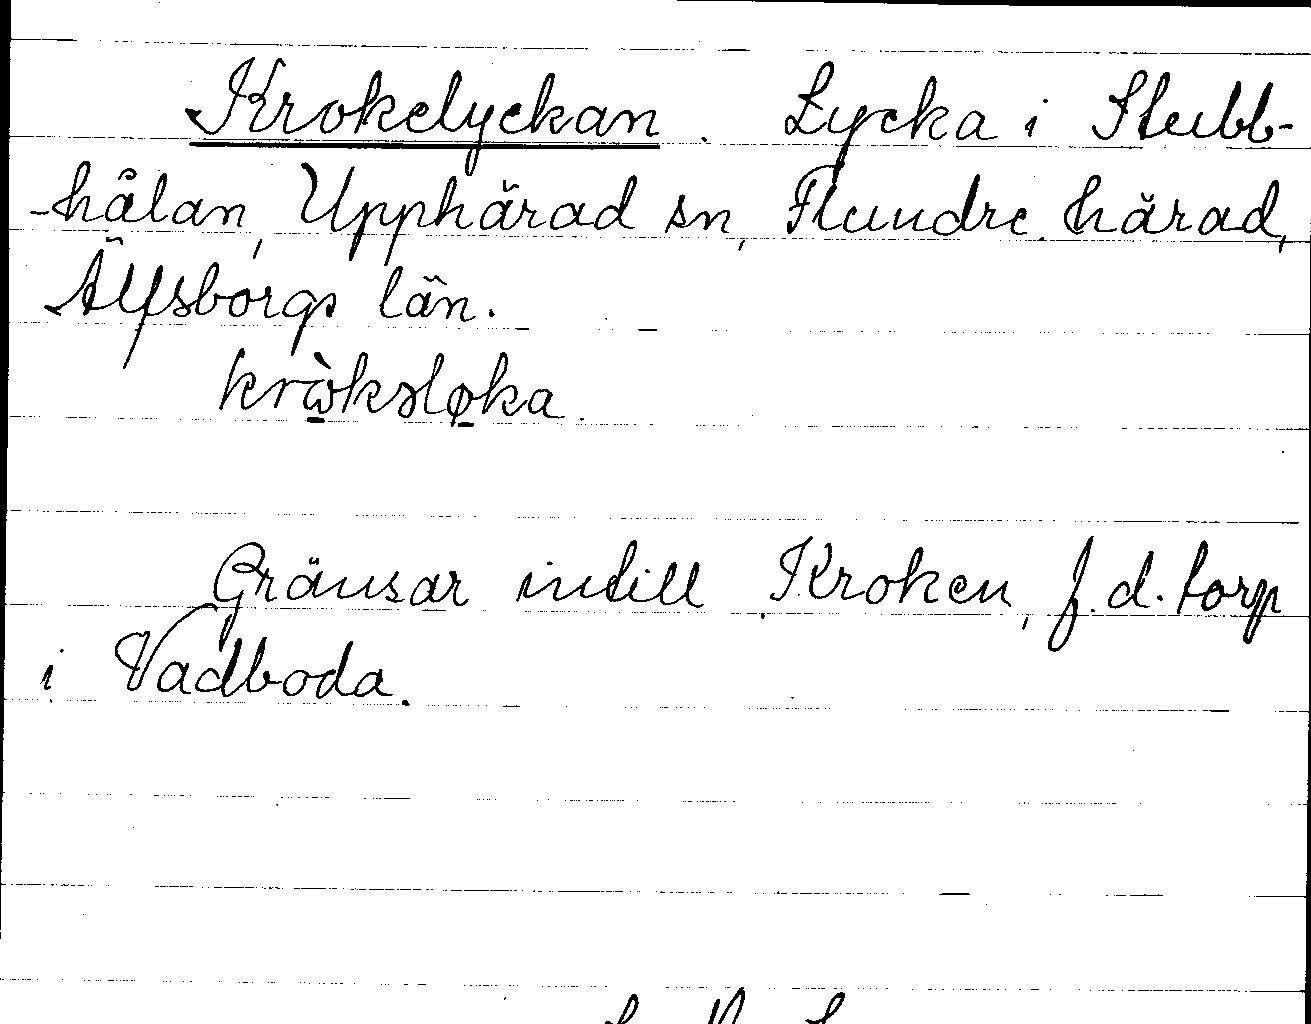 Krokelyckan. Lycka i Stubb-
-hålan, Upphärad sn, Flundre härad,
Älfsborgs län.
kròkəløka
Gränsar intill Kroken, f.d. torp
i Vadboda.